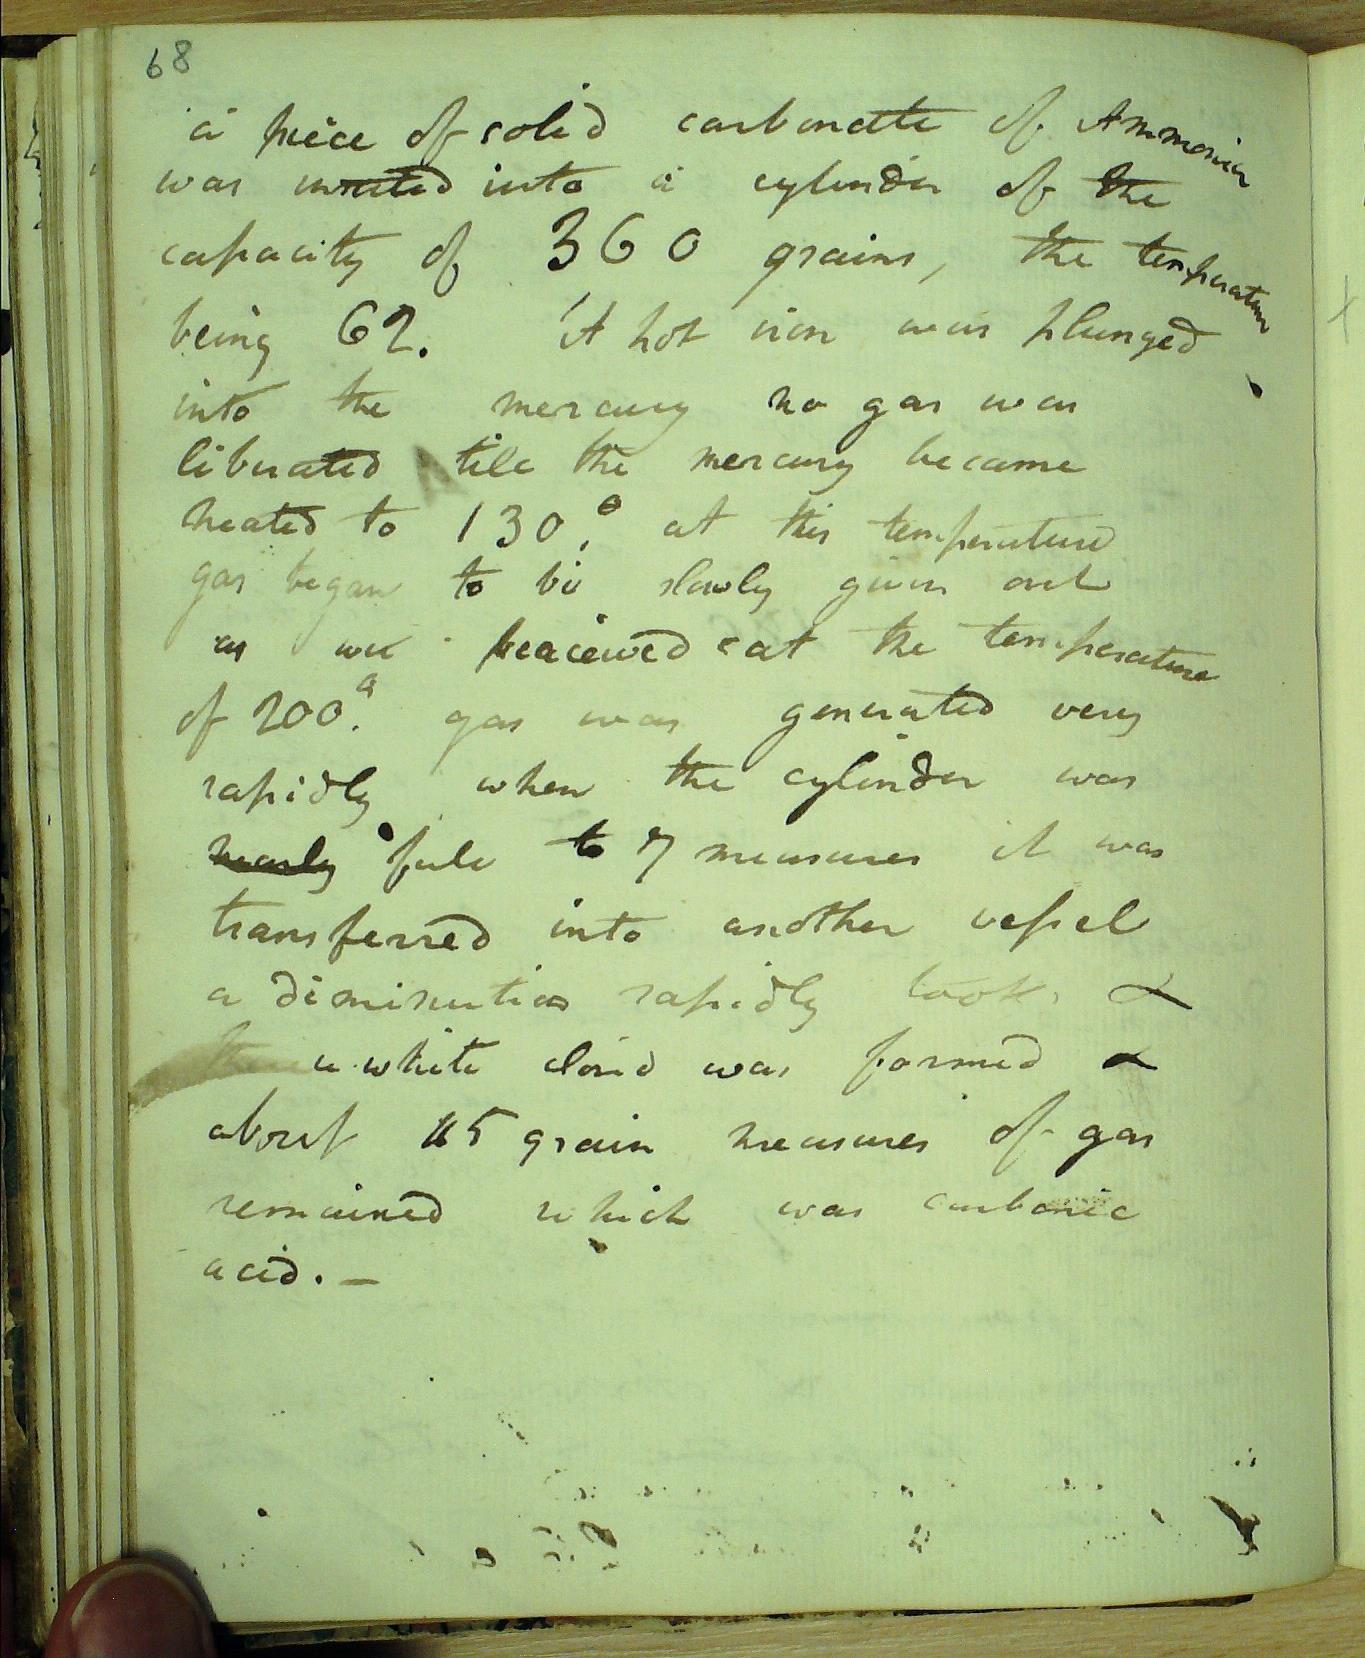 68
a piece of solid carbonate of Ammonia
was inserted into a cylinder of the
capacity of 360 grains, the temperature
being 62. A hot iron was plunged
into the mercury no gas was
liberated till the mercury became
heated to 130.° at this temperature
gas began to be slowly given out
as we perceived at the temperature
of 200.° gas was generated very
rapidly when the cylinder was
nearly full to 7 measures it was
transferred into another vessel
a diminution rapidly took &
a white cloud was formed &
about 15 grain measures of gas
remained which was carbonic
acid. —